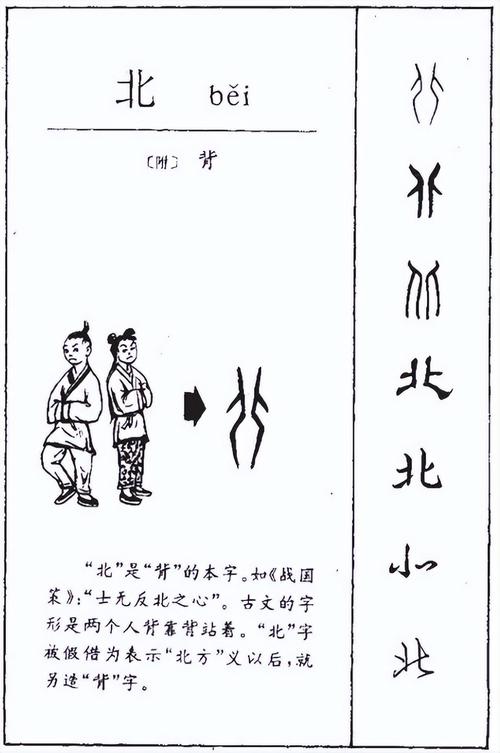 北 běi
〔附〕 背
“北”是“背”的本字。如《战国
策》：“士无反北之心”。古文的字
形是两个人背靠背站着。“北”字
被假借为表示“北方”义以后，就
另造“背”字。
北
北
北
北
北
北
北